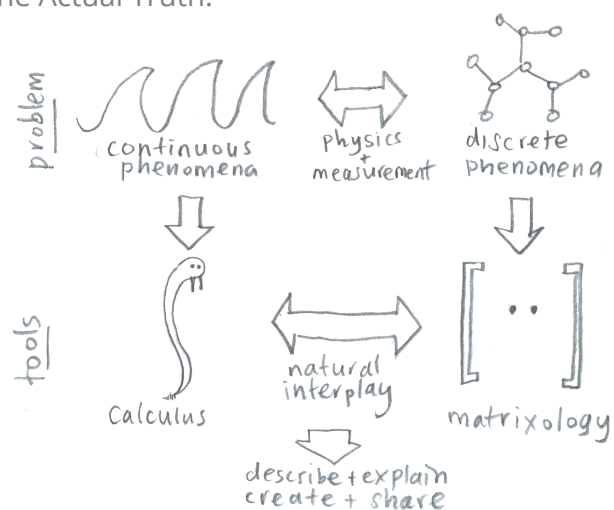 The Actual Truth.
problem
continuous
phenomena
physics
+
measurement
discrete
phenomena
tools
calculus
natural
interplay
matrixology
describe + explain
create + share